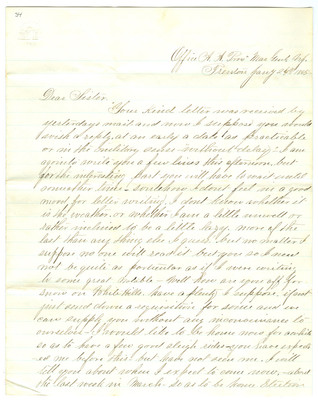 Dear Sister.
Your kind letter was received by
yesterdays mail and now I suppose you should
wish a reply, at an early a date as practicable
or in the building sense "without delay" I am
going to write you a few lines this afternoon, but
for the interesting part you will have to wait until
some other time, somehow I dont feel in a good
mood for letter writing. I dont know whether it
is the weather or whether I am a little unwell or
rather inclined to be a little lazy, more of the
last than any thing else I guess. but no matter I
suppose no one will read it but you so I need
not be quite as particular as if I were writing
to some great notable. Well how are you off for
snow on White Hills, have a plenty I suppose, if not
just send down a requisition for some and we
can supply you without any inconvenience to
ourselves. I would like to be home now for awhile
so as to have a few good sleigh rides
ed me before this but have not seen me. I will
tell you about when I expect to come now, about
the last week in March so as to be home Election